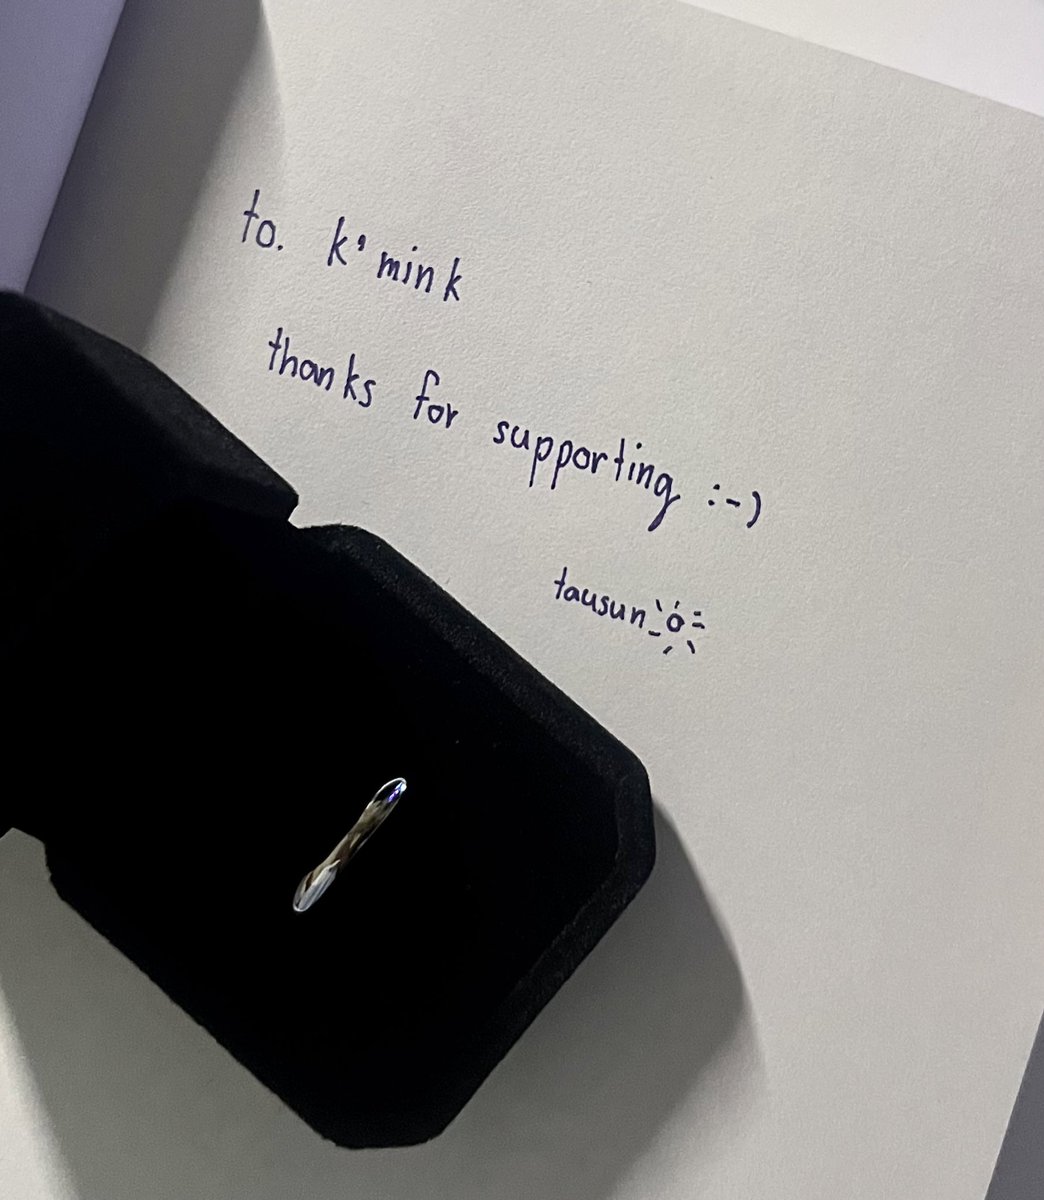 to. k' mink
thanks for supporting :-)
tausun